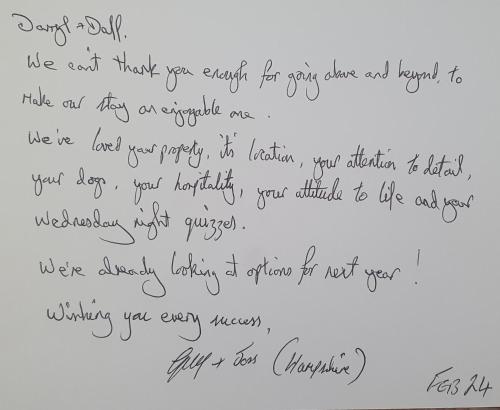 Darryl + Dall.
We can't thank you enough for going above and beyond, to
make our stay an enjoyable one.
We've loved your property, it's location, your attention to detail,
your dogs, your hospitality, your attitude to life and your
Wednesday night quizzes.
We're already looking at options for next year!
Wishing you every success,
+ Joss (Hampshire)
FEB 24